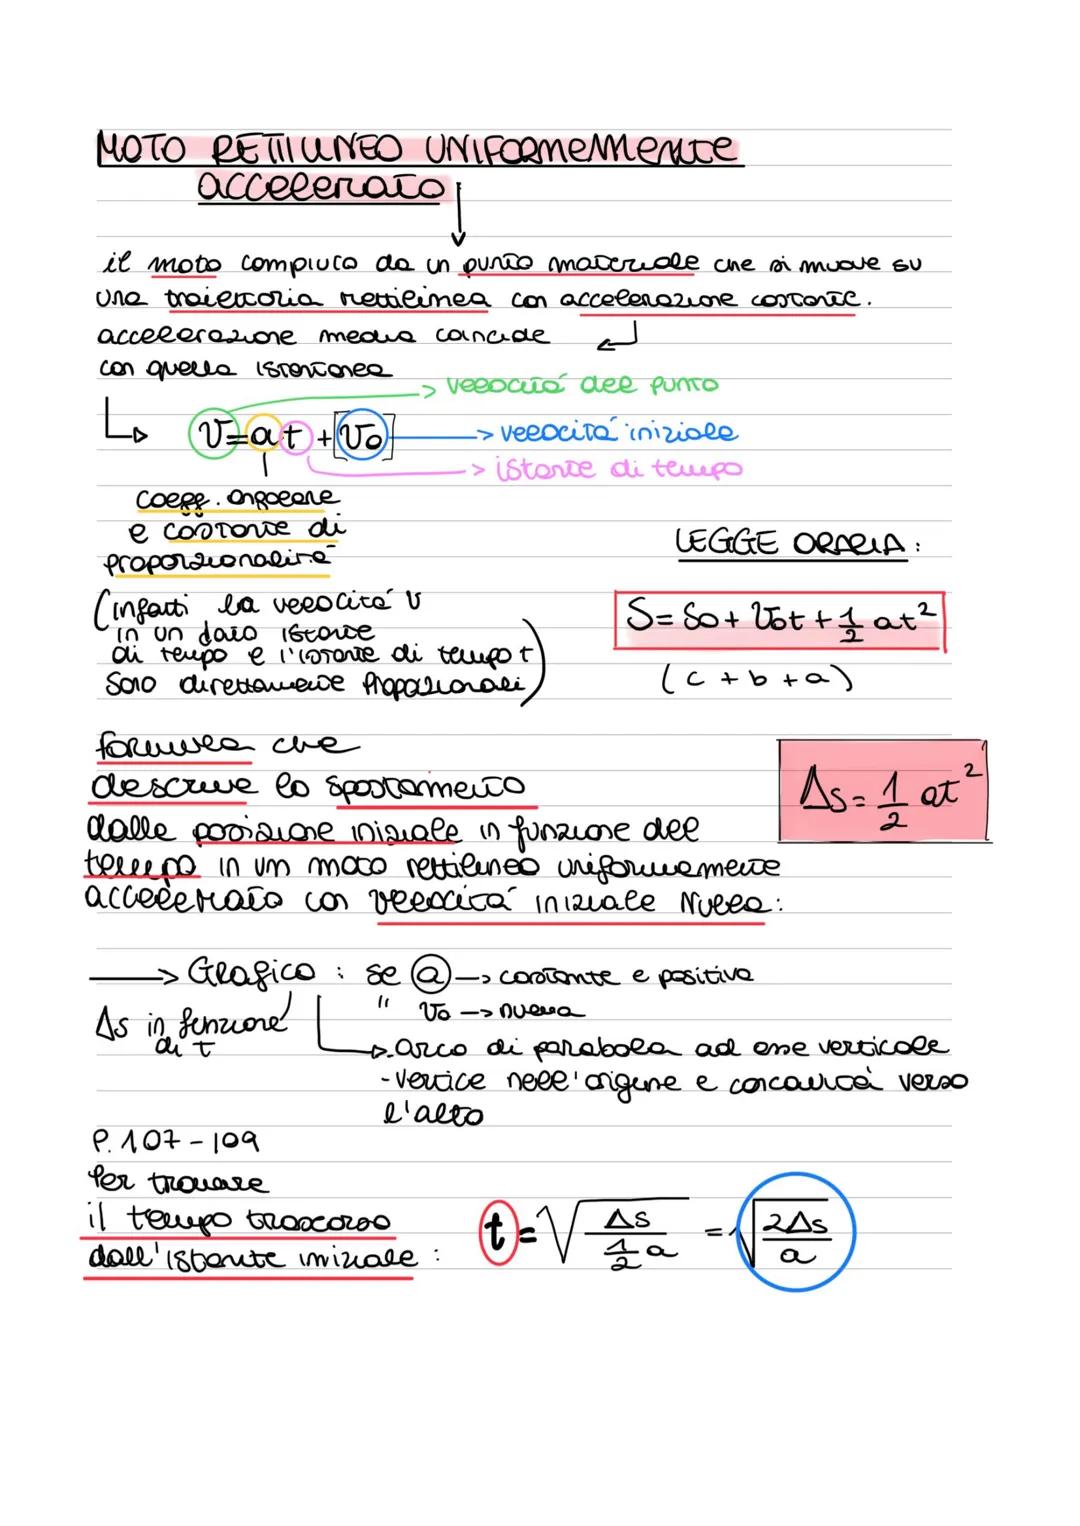 MOTO RETTILINEO UNIFORMEMENTE
accelerato
il moto compiuto da un punto materiale che si muove su
una traiettoria rettilinea con accelerazione costante.
accelerazione media coincide
con quella istantanea
velocità del punto
v=at + [v₀]
velocità iniziale
istante di tempo
coeff. angolare
e costante di
proporzionalità
(infatti la velocità v
in un dato istante
di tempo e l'istante di tempo t
sono direttamente proporzionali)
LEGGE ORARIA:
S= So + Vot + 1/2 at²
(c + b + a)
formula che
descrive lo spostamento
dalle posizione iniziale in funzione del
tempo in un moto rettilineo uniformemente
accelerato con velocità iniziale nulla:
Δs = 1/2 at²
Grafico : se a -> costante e positiva
" Vo -> nulla
Δs in funzione
di t
- arco di parabola ad asse verticale
- vertice nell'origine e concavità verso
l'alto
P. 107-109
Per trovare
il tempo trascorso
dall'istante iniziale :
t = √(Δs / 1/2 a) = √(2Δs / a)